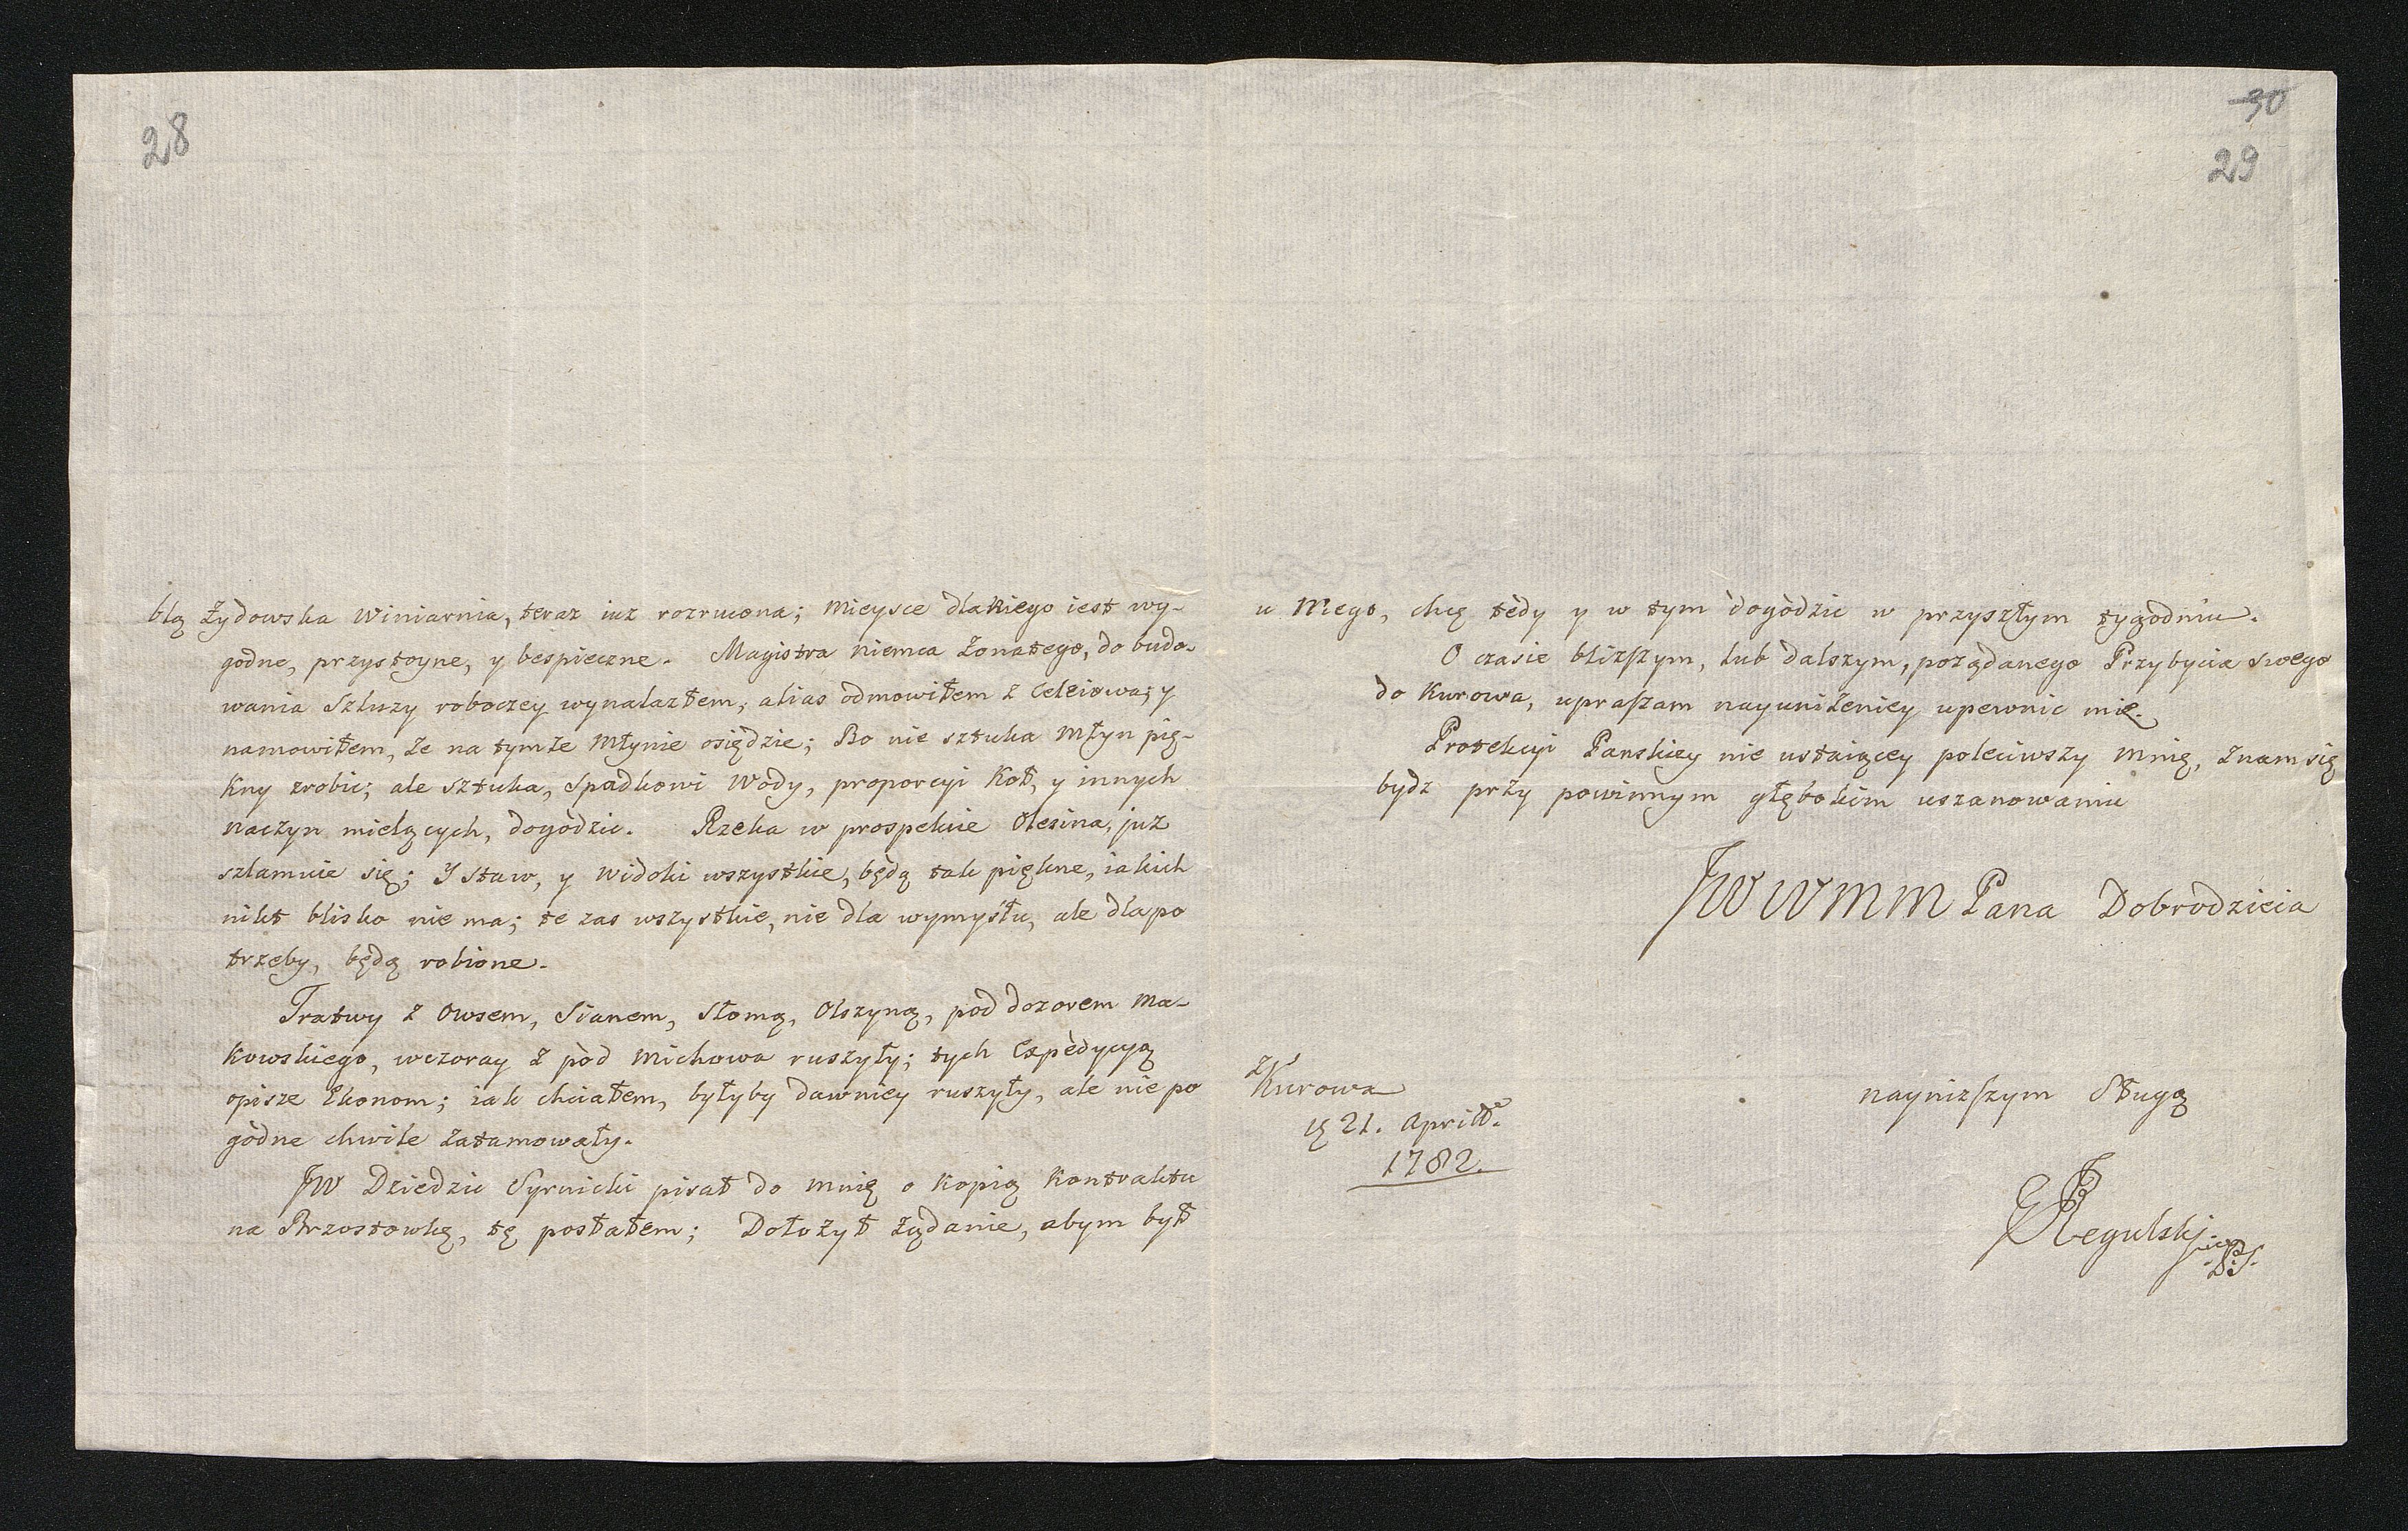 28
blą Żydowska Winiarnia, teraz iuz rozrucona; Mieysce dlakiego iest wy-
godne, przystoyne, y bespieczne. Magistra niemca Żonatego, do budo-
wania Szluzy roboczey wynalazłem, alias odmowiłem z Celeiowa; y
namowiłem, że na tymże Młynie osiędzie; Bo nie sztuka Młyn pię-
kny zrobic; ale sztuka, Spadkowi Wody, proporcyi Kół, y innych
naczyn mielących, dogodzic. Rzeka w prospekcie Olesina, już
szlamuie się; Y Staw, y Widoki wszystkie, będą tak piękne, iakich
nikt blisko nie ma; te zas wszystkie, nie dla wymysłu, ale dla po
trzeby, będą robione.
Tratwy z Owsem, Sianem, Słomą, Olszyną, pod dozorem Ma-
kowskiego, wczoray z pod Michowa ruszyły; tych Expedycyą
opisze Ekonom; iak chciałem, byłyby dawniey ruszyły, ale nie po
godne chwile zatamowały.
JW Dziedzic Syrnicki pisał do mnię o Kopią Kontraktu
na Brzostowkę, tę posłałem; Dołożył żądanie, abym był
30
29
u Niego, chcę tedy y w tym dogodzic w przyszłym tygodniu.
O czasie bliższym, lub dalszym, pożądanego Przybycia swego
do Kurowa, upraszam nayuniżeniey upewnic mię.
Protekcyi Panskiey nie ustaiącey poleciwszy mnię, Znam się
bydz przy powinnym głębokim uszanowaniu
JWWMM Pana Dobrodzieia
z Kurowa
21. Aprill.
1782.
nayniższym Sługą
Regulski